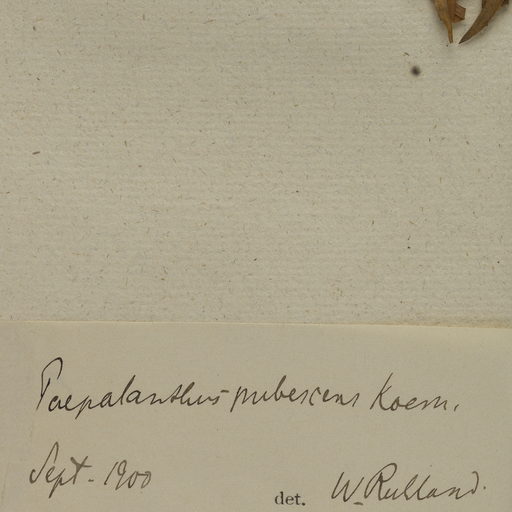 Paepalanthus pubescens Koern.
Sept. 1900
det. W. Ruhland.